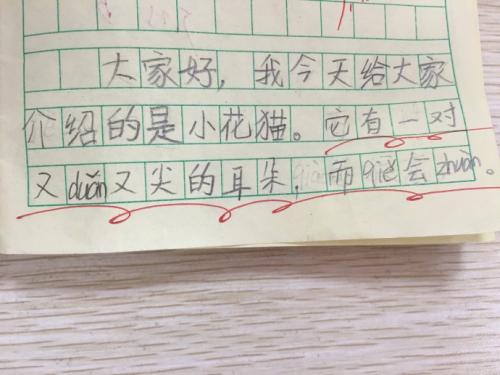 大家好，我今天给大家
介绍的是小花猫。它有一对
又duǎn又尖的耳朵，而qiě会zhuàn。